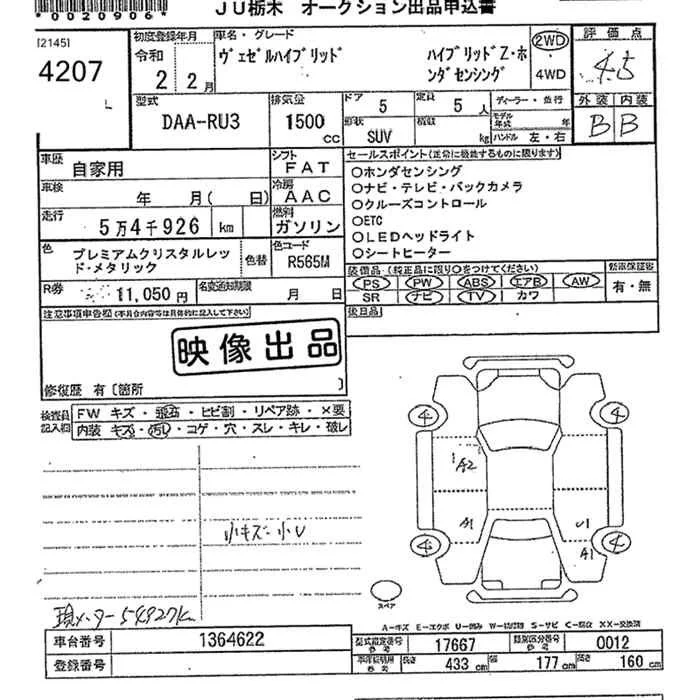 *0020906*
JU栃木 オークション出品申込書
[2145]
4207
L
初度登録年月
令和
2 2月
車名・グレード
ヴェゼルハイブリッド ハイブリッドZ・ホ
ンダセンシング
2WD
4WD
評価点
4.5
外装 内装
B B
型式
DAA-RU3
排気量
1500 cc
ドア 5
定員 5 人
形状 SUV
積載 kg
ディーラー・並行
モデル年式 年
ハンドル 左・右
車歴 自家用
シフト FAT
車検 年 月( 日)
冷房 AAC
走行 5万4千926 km
燃料 ガソリン
色 プレミアムクリスタルレッ
ド・メタリック
色替
色コード R565M
R券 11,050円
名変通知期限 月 日
セールスポイント(正常に機能するものに限ります)
○ホンダセンシング
○ナビ・テレビ・バックカメラ
○クルーズコントロール
○ETC
○LEDヘッドライト
○シートヒーター
装備品(純正品に限り○をつけてください)
PS PW ABS エアB AW
SR ナビ TV カワ
新車保証書
有・無
後日品
注意事項申告欄(不具合内容等は具体的に記入して下さい)
映像出品
修復歴 有〔箇所 〕
検査員
記入欄
FW キズ・飛石・ヒビ割・リペア跡・×要
内装 キズ・汚レ・コゲ・穴・スレ・キレ・破レ
小キズ・小U
現メーター54927km
4 4
A2
A1 U1
A1
4 4
スペア
A－キズ E－エクボ U－凹み W－波打際 S－サビ C－腐食 XX－交換済
車台番号 1364622
登録番号
型式指定番号 参考 17667
類別区分番号 参考 0012
車庫証明用 参考
長さ 433 cm
幅 177 cm
高さ 160 cm